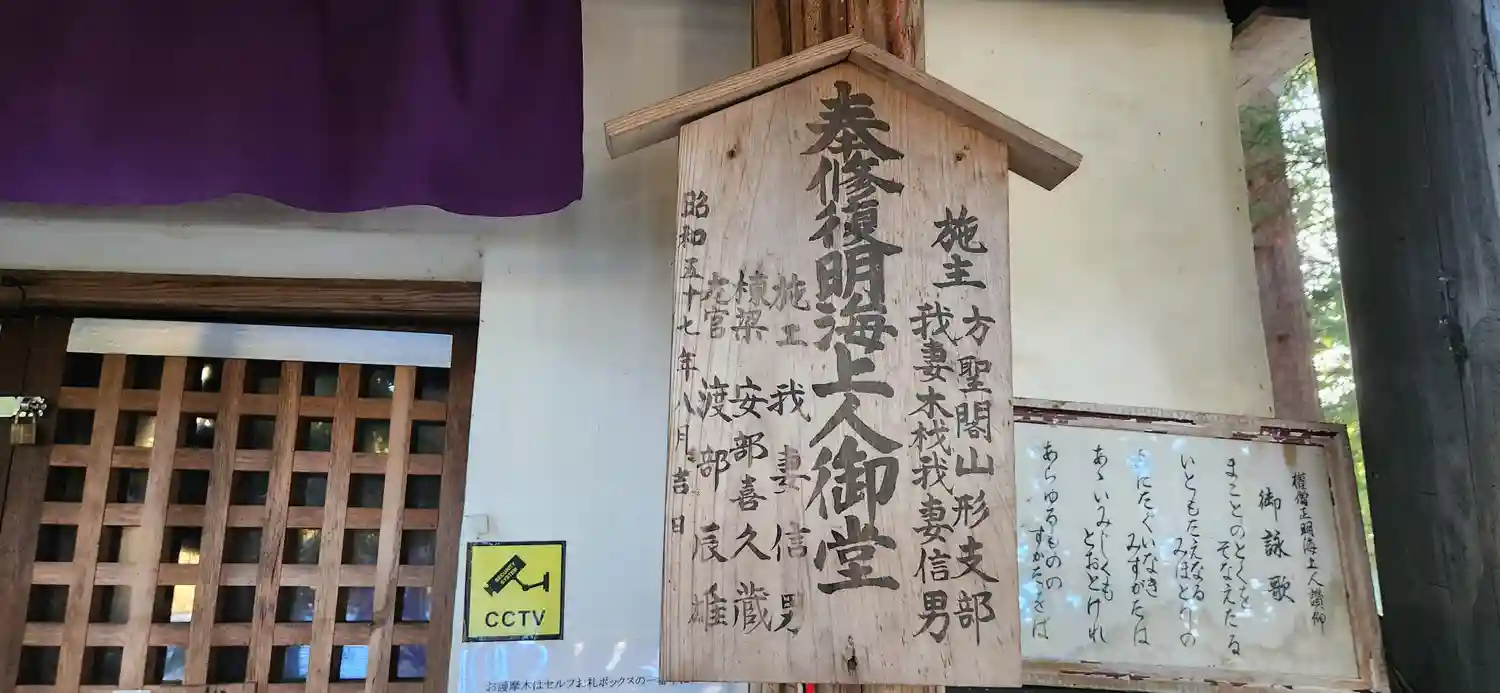 奉修復明海上人御堂
施主
方聖閣山形支部
我妻木材我妻信男
施工 我妻信男
棟梁 安部喜久蔵
渡部辰雄
昭和五十七年八月吉日
権僧正明海上人讃仰
御詠歌
まことのとくを
そなえたる
いともたえなる
みほとりの
よにたぐいなき
みすがたは
あゝいみじくも
とおとけれ
あらゆるものの
すがたをば
SECURITY
SYSTEM
CCTV
お護摩木はセルフお札ボックスの一番下に